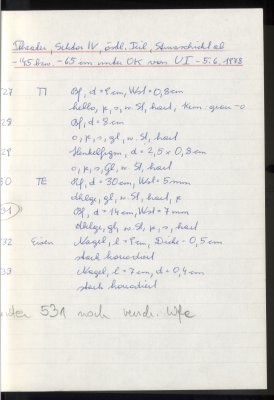 Theater, Sektor IV, östl. Teil, Steinschicht al
-45 bzw. -65 cm unter OK von VI - 5.6.1978
27 TI Bf, d = 9 cm, Wst = 0,8 cm
hello, k, s, w. St, hart, Kern: grau-o
28 Bf, d = 8 cm
o, k, s, gl, w. St, hart
29 Henkelfrgm, d = 2,5 x 0,8 cm
o, k, s, gl, w. St, hart
30 TE Rf, d = 30 cm, Wst = 5 mm
dklge, gl, w. St, hart, k
31 Bf, d = 14 cm, Wst = 7 mm
dklge, gl, w. St, k, s, hart
32 Eisen Nagel, l = 9 cm, Dicke - 0,5 cm
stark korrodiert
33 Nagel, l = 7 cm, d = 0,4 cm
stark korrodiert
unter 531 noch versch.